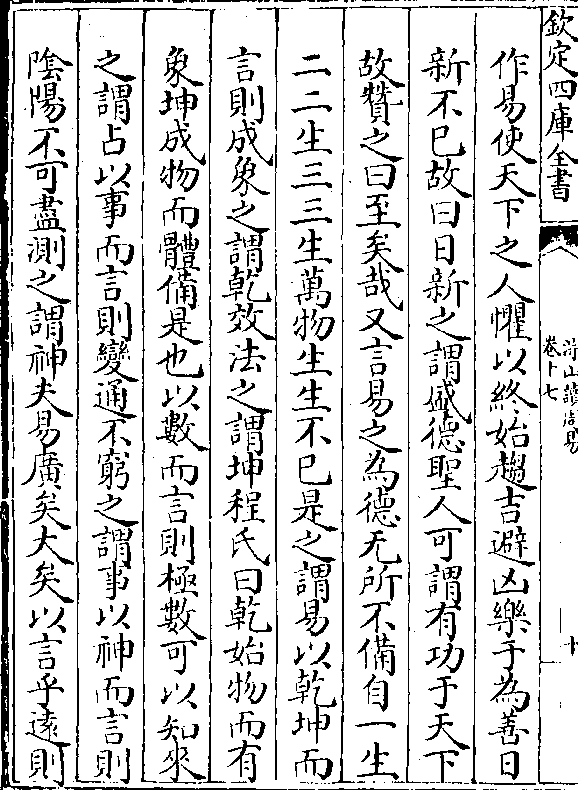 欽定四庫全書
卷十七
十
作易使天下之人懼以終始趨吉避凶樂于為善日
新不已故曰日新之謂盛德聖人可謂有功于天下
故贊之曰至矣哉又言易之為德无所不備自一生
二二生三三生萬物生生不已是之謂易以乾坤而
言則成象之謂乾效法之謂坤程氏曰乾始物而有
象坤成物而體備是也以數而言則極數可以知來
之謂占以事而言則變通不窮之謂事以神而言則
陰陽不可盡測之謂神夫易廣矣大矣以言乎遠則